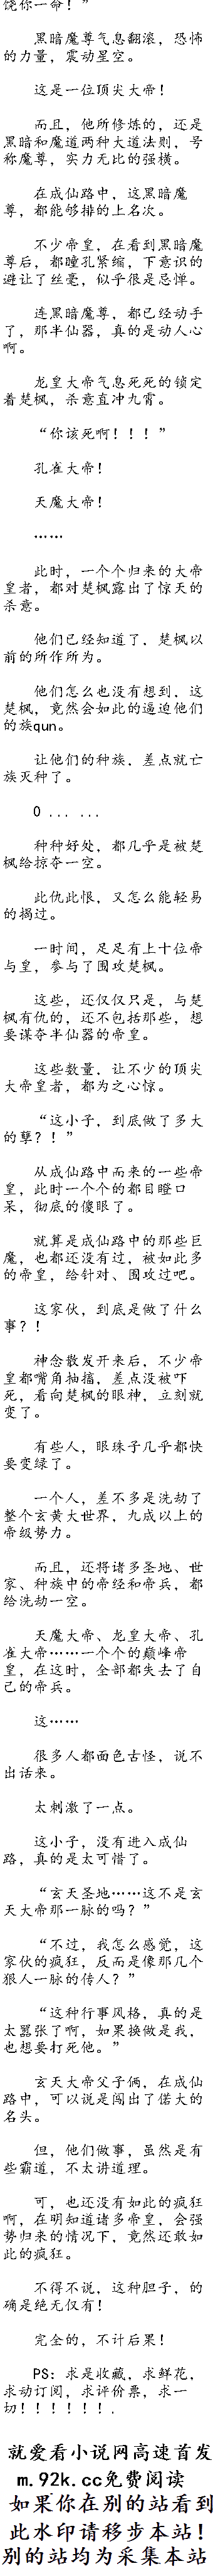 饶你一命！”
黑暗魔尊气息翻滚，恐怖
的力量，震动星空。
这是一位顶尖大帝！
而且，他所修炼的，还是
黑暗和魔道两种大道法则，号
称魔尊，实力无比的强横。
在成仙路中，这黑暗魔
尊，都能够排的上名次。
不少帝皇，在看到黑暗魔
尊后，都瞳孔紧缩，下意识的
避让了丝毫，似乎很是忌惮。
连黑暗魔尊，都已经动手
了，那半仙器，真的是动人心
啊。
龙皇大帝气息死死的锁定
着楚枫，杀意直冲九霄。
“你该死啊！！！”
孔雀大帝！
天魔大帝！
……
此时，一个个归来的大帝
皇者，都对楚枫露出了惊天的
杀意。
他们已经知道了．楚枫以
前的所作所为。
他们怎么也没有想到．这
楚枫，竟然会如此的逼迫他们
的族qun。
让他们的种族．差点就亡
族灭种了。
0 ... ...
种种好处，都几乎是被楚
枫给掠夺一空。
此仇此恨，又怎么能轻易
的揭过。
一时间，足足有上十位帝
与皇，参与了围攻楚枫。
这些，还仅仅只是，与楚
枫有仇的，还不包括那些，想
要谋夺半仙器的帝皇。
这些数量．让不少的顶尖
大帝皇者，都为之心惊。
“这小子，到底做了多大
的孽？！”
从成仙路中而来的一些帝
皇，此时一个个的都目瞪口
呆，彻底的傻眼了。
就算是成仙路中的那些巨
魔，也都还没有过，被如此多
的帝皇，给针对、围攻过吧。
这家伙，到底是做了什么
事？！
神念散发开来后，不少帝
皇都嘴角抽搐，差点没被吓
死，看向楚枫的眼神，立刻就
变了。
有些人，眼珠子几乎都快
要变绿了。
一个人，差不多是洗劫了
整个玄黄大世界，九成以上的
帝级势力。
而且，还将诸多圣地、世
家、种族中的帝经和帝兵，都
给洗劫一空。
天魔大帝、龙皇大帝、孔
雀大帝……一个个的巅峰帝
皇，在这时，全部都失去了自
己的帝兵。
这……
很多人都面色古怪，说不
出话来。
太刺激了一点。
这小子，没有进入成仙
路，真的是太可惜了。
“玄天圣地……这不是玄
天大帝那一脉的吗？”
“不过，我怎么感觉，这
家伙的疯狂，反而是像那几个
狠人一脉的传人？”
“这种行事风格，真的是
太嚣张了啊，如果换做是我，
也想要打死他。”
玄天大帝父子俩，在成仙
路中，可以说是闯出了偌大的
名头。
但，他们做事，虽然是有
些霸道，不太讲道理。
可，也还没有如此的疯狂
啊，在明知道诸多帝皇，会强
势归来的情况下，竟然还敢如
此的疯狂。
不得不说，这种胆子，的
确是绝无仅有！
完全的，不计后果！
PS：求是收藏，求鲜花，
求动订阅，求评价票，求一
切！！！！！！.
就爱看小说网高速首发
m.92k.cc免费阅读
如果你在别的站看到
此水印请移步本站！
别的站均为采集本站